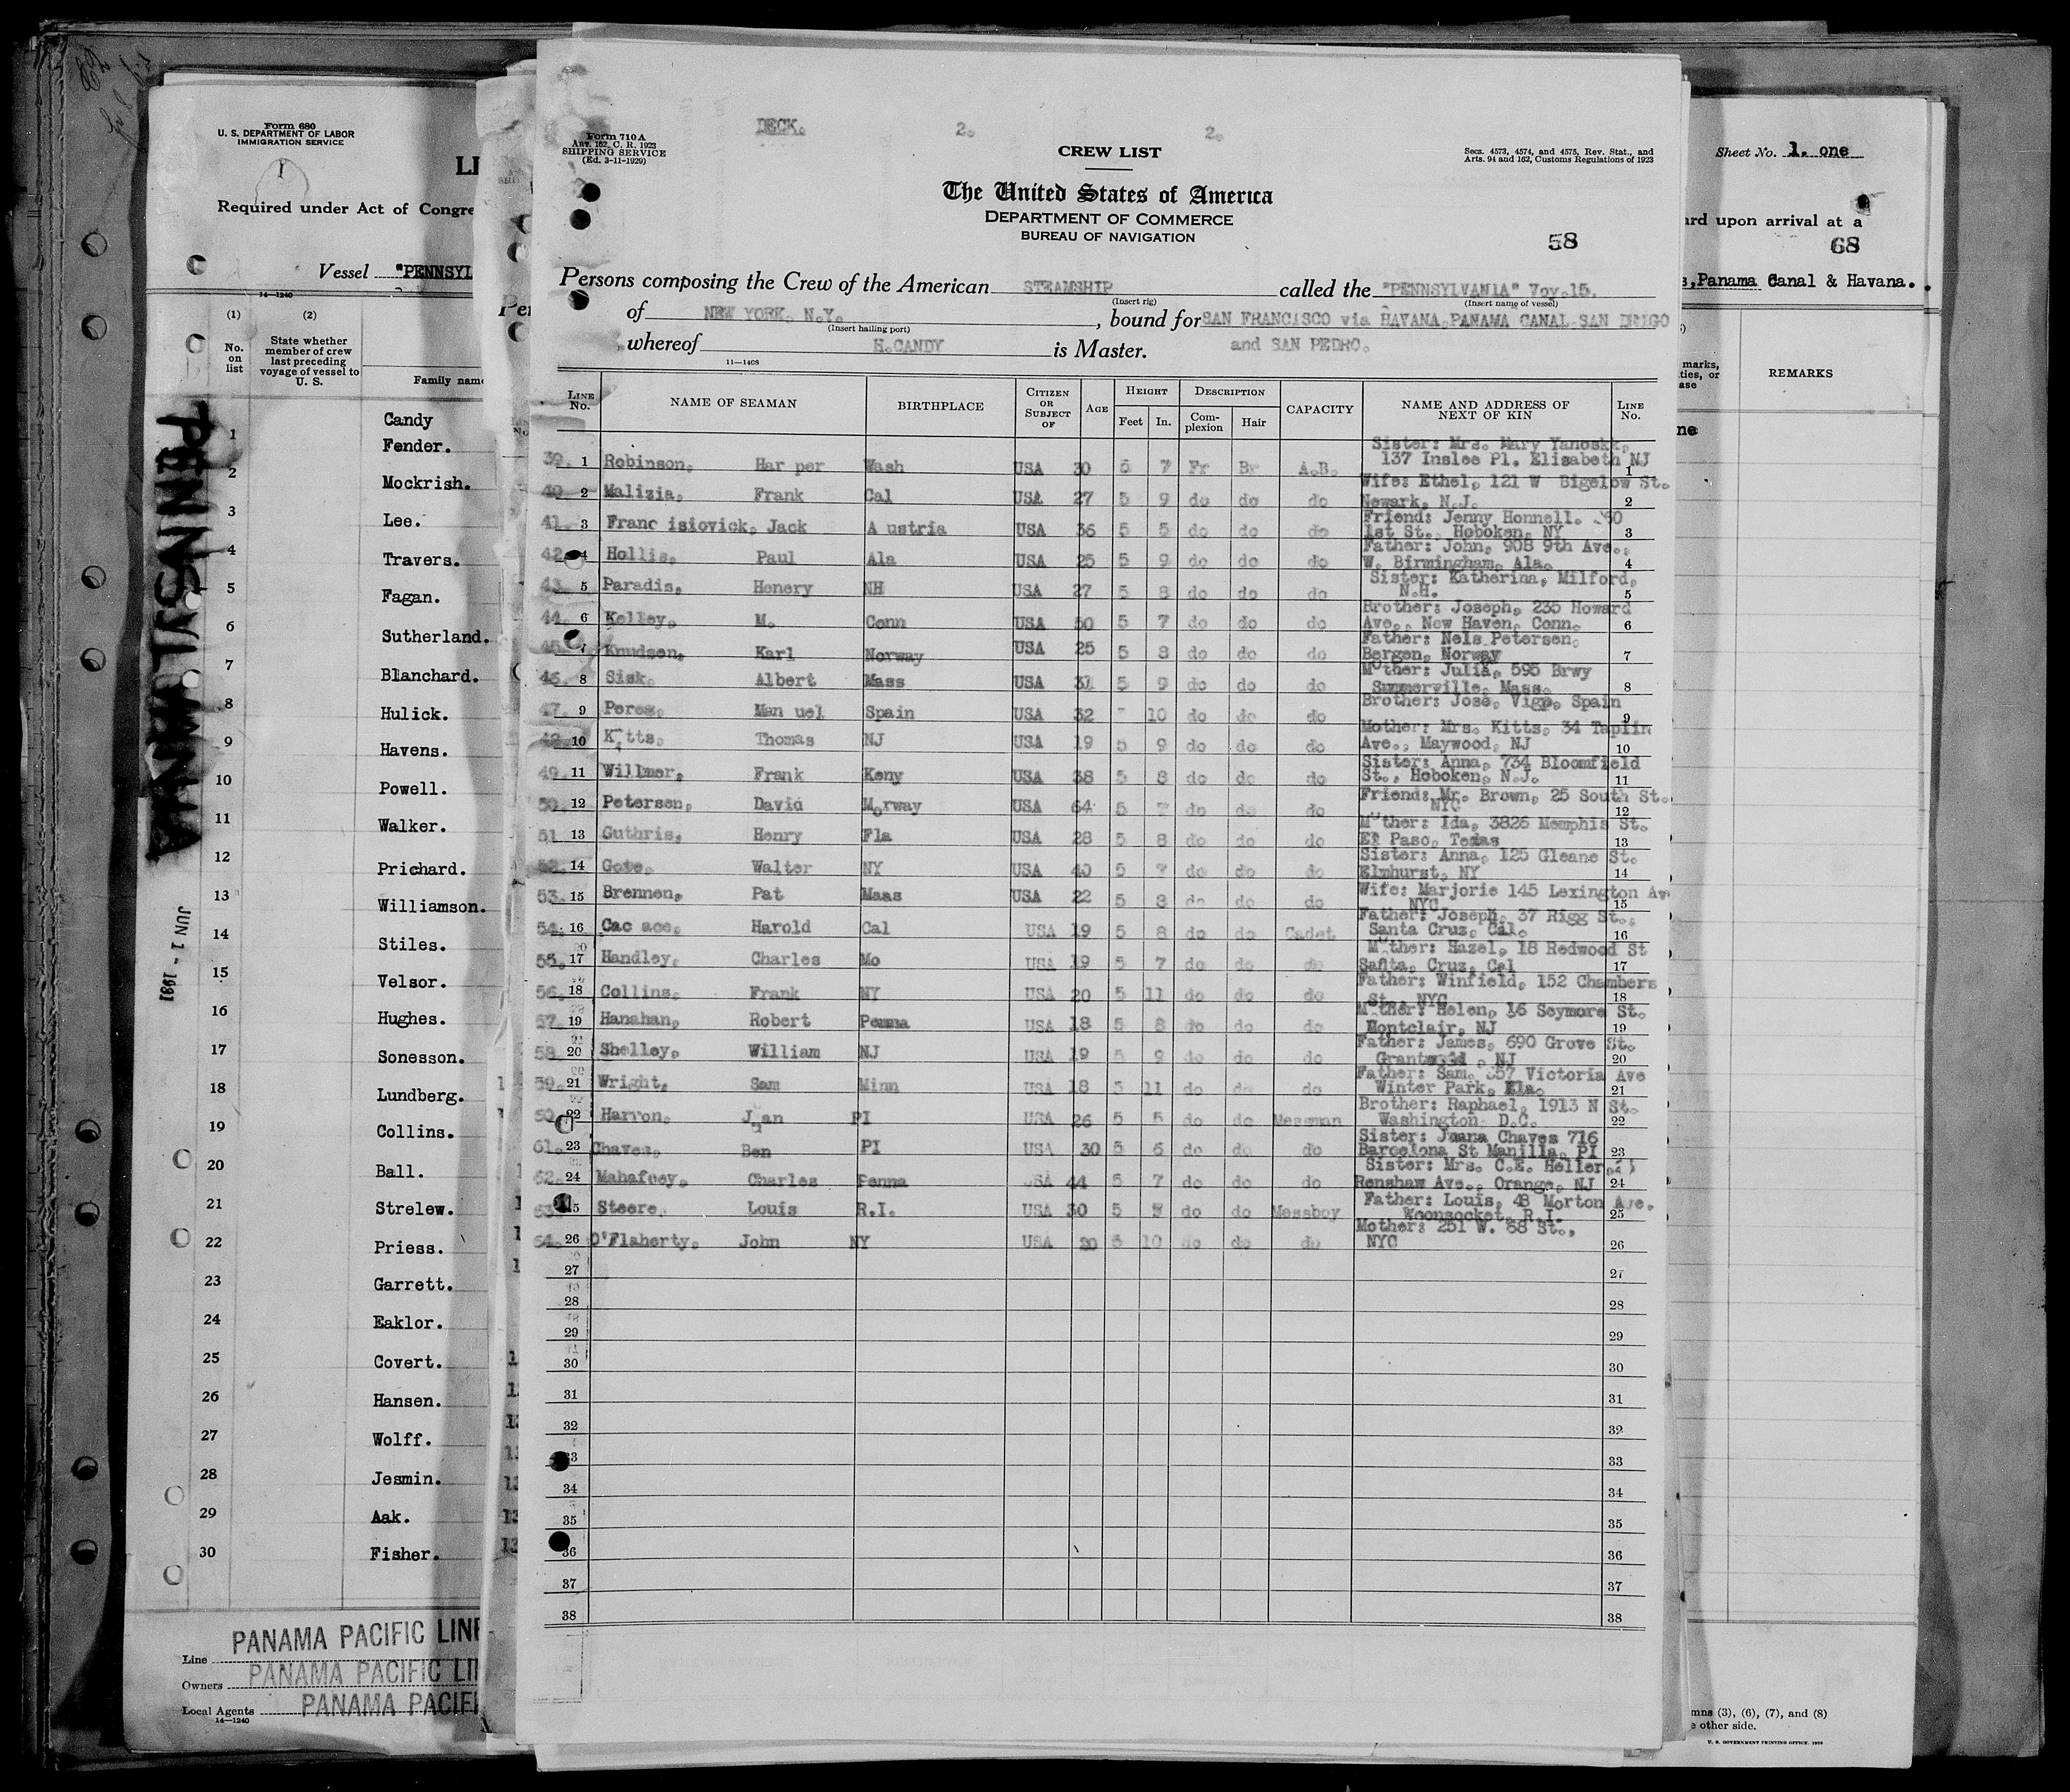 Form 680
U. S. DEPARTMENT OF LABOR
IMMIGRATION SERVICE
Required under Act of Congre
Vessel "PENNSYL
14—1240
(1)
No.
on
list
(2)
State whether
member of crew
last preceding
voyage of vessel to
U. S.
Family name
Candy
1 Fender.
2 Mockrish.
3 Lee.
4 Travers.
5 Fagan.
6 Sutherland.
7 Blanchard.
8 Hulick.
9 Havens.
10 Powell.
11 Walker.
12 Prichard.
13 Williamson.
14 Stiles.
15 Velsor.
16 Hughes.
17 Sonesson.
18 Lundberg.
19 Collins.
20 Ball.
21 Strelew.
22 Priess.
23 Garrett.
24 Eaklor.
25 Covert.
26 Hansen.
27 Wolff.
28 Jesmin.
29 Aak.
30 Fisher.
PENNSYLVANIA
JUN 1 - 1931
Line PANAMA PACIFIC LINE
Owners PANAMA PACIFIC LI
Local Agents PANAMA PACIFI
14—1240
DECK. 2. 2.
Form 710A
Art. 162, C. R. 1923
SHIPPING SERVICE
(Ed. 3-11-1929)
CREW LIST
Secs. 4573, 4574, and 4575, Rev. Stat., and
Arts. 94 and 162, Customs Regulations of 1923
The United States of America
DEPARTMENT OF COMMERCE
BUREAU OF NAVIGATION
58
Persons composing the Crew of the American STEAMSHIP called the "PENNSYLVANIA" Voy.15.
(Insert rig) (Insert name of vessel)
of NEW YORK. N.Y. , bound for SAN FRANCISCO via HAVANA,PANAMA CANAL SAN DEIGO
(Insert hailing port)
whereof H.CANDY is Master. and SAN PEDRO.
11—1408
LINE No. NAME OF SEAMAN BIRTHPLACE CITIZEN OR SUBJECT OF AGE HEIGHT Feet In. DESCRIPTION Complexion Hair CAPACITY NAME AND ADDRESS OF NEXT OF KIN LINE No.
Sister: Mrs. Mary Yanoskk,
39. 1 Robinson, Har per Wash USA 30 5 7 Fr Br A.B. 137 Inslee Pl. Elisabeth NJ 1
Wife: Ethel, 121 W Bigelow St.
40. 2 Malizia, Frank Cal USA 27 5 9 do do do Newark, N.J. 2
Friend: Jenny Honnell.
41. 3 Franc isiovick, Jack A ustria USA 36 5 5 do do do 1st St., Hoboken, NY 3
Father: John, 908 9th Ave.,
42. 4 Hollis, Paul Ala USA 25 5 9 do do do W. Birmingham, Ala. 4
Sister: Katherina, Milford,
43. 5 Paradis, Henery NH USA 27 5 8 do do do N.H. 5
Brother: Joseph, 235 Howard
44. 6 Kelley, M. Conn USA 50 5 7 do do do Ave., New Haven, Conn. 6
Father: Nels Petersen,
45. 7 Knudsen, Karl Norway USA 25 5 8 do do do Bergen, Norway 7
Mother: Julia, 595 Brwy
46. 8 Sisk, Albert Mass USA 31 5 9 do do do Summerville, Mass. 8
Brother: Jose, Vigo, Spain
47. 9 Peres, Man uel Spain USA 32 10 do do do 9
Mother: Mrs. Kitts, 34 Taplin
48. 10 Kitts, Thomas NJ USA 19 5 9 do do do Ave., Maywood, NJ 10
Sister: Anna, 734 Bloomfield
49. 11 Willmer, Frank Keny USA 38 5 8 do do do St., Hoboken, N.J. 11
Friend: Mr. Brown, 25 South St.
50. 12 Petersen, David Morway USA 64 5 7 do do do NYC 12
Mother: Ida, 3826 Memphis St.
51. 13 Guthris, Henry Fla USA 28 5 8 do do do El Paso, Texas 13
Sister: Anna, 125 Gleane St.
52. 14 Gove, Walter NY USA 40 5 7 do do do Elmhurst, NY 14
Wife: Marjorie 145 Lexington Av
53. 15 Brennen, Pat Maas USA 22 5 8 do do do NYC 15
Father: Joseph, 37 Rigg St.,
54. 16 Cac ace, Harold Cal USA 19 5 8 do do Cadet Santa Cruz, Cal. 16
Mother: Hazel, 18 Redwood St
55. 17 Handley, Charles Mo USA 19 5 7 do do do Santa, Cruz, Cal 17
Father: Winfield, 152 Chambers
56. 18 Collins, Frank NY USA 20 5 11 do do do St., NYC 18
Mother: Helen, 16 Seymore St.
57. 19 Hanahan, Robert Penna USA 18 5 8 do do do Montclair, NJ 19
Father: James, 690 Grove St.
58. 20 Shelley, William NJ USA 19 5 9 do do do , NJ 20
Father: Sam, 357 Victoria Ave
59. 21 Wright, Sam Minn USA 18 5 11 do do do Winter Park, Fla. 21
Brother: Raphael, 1913 N St.
60. 22 Harron, Juan PI USA 26 5 5 do do Messman Washington D.C. 22
Sister: Juana Chaves 716
61. 23 Chaves, Ben PI USA 30 5 6 do do do Barcelona St Manilla, PI 23
Sister: Mrs. C.E. Heller,
62. 24 Mahafeey, Charles Penna USA 44 5 7 do do do Renshaw Ave., Orange, NJ 24
Father: Louis, 48 Morton Ave.
63. 25 Steere, Louis R.I. USA 30 5 7 do do Messboy Woonsocket, R.I. 25
Mother: 251 W. 68 St.,
64. 26 O'Flaherty, John NY USA 20 5 10 do do do NYC 26
27 27
28 28
29 29
30 30
31 31
32 32
33 33
34 34
35 35
36 36
37 37
38 38
Sheet No. 1. one
ard upon arrival at a
68
s,Panama Canal & Havana.
marks,
ties, or
ase
REMARKS
ne
mns (3), (6), (7), and (8)
e other side.
U. S. GOVERNMENT PRINTING OFFICE. 1926